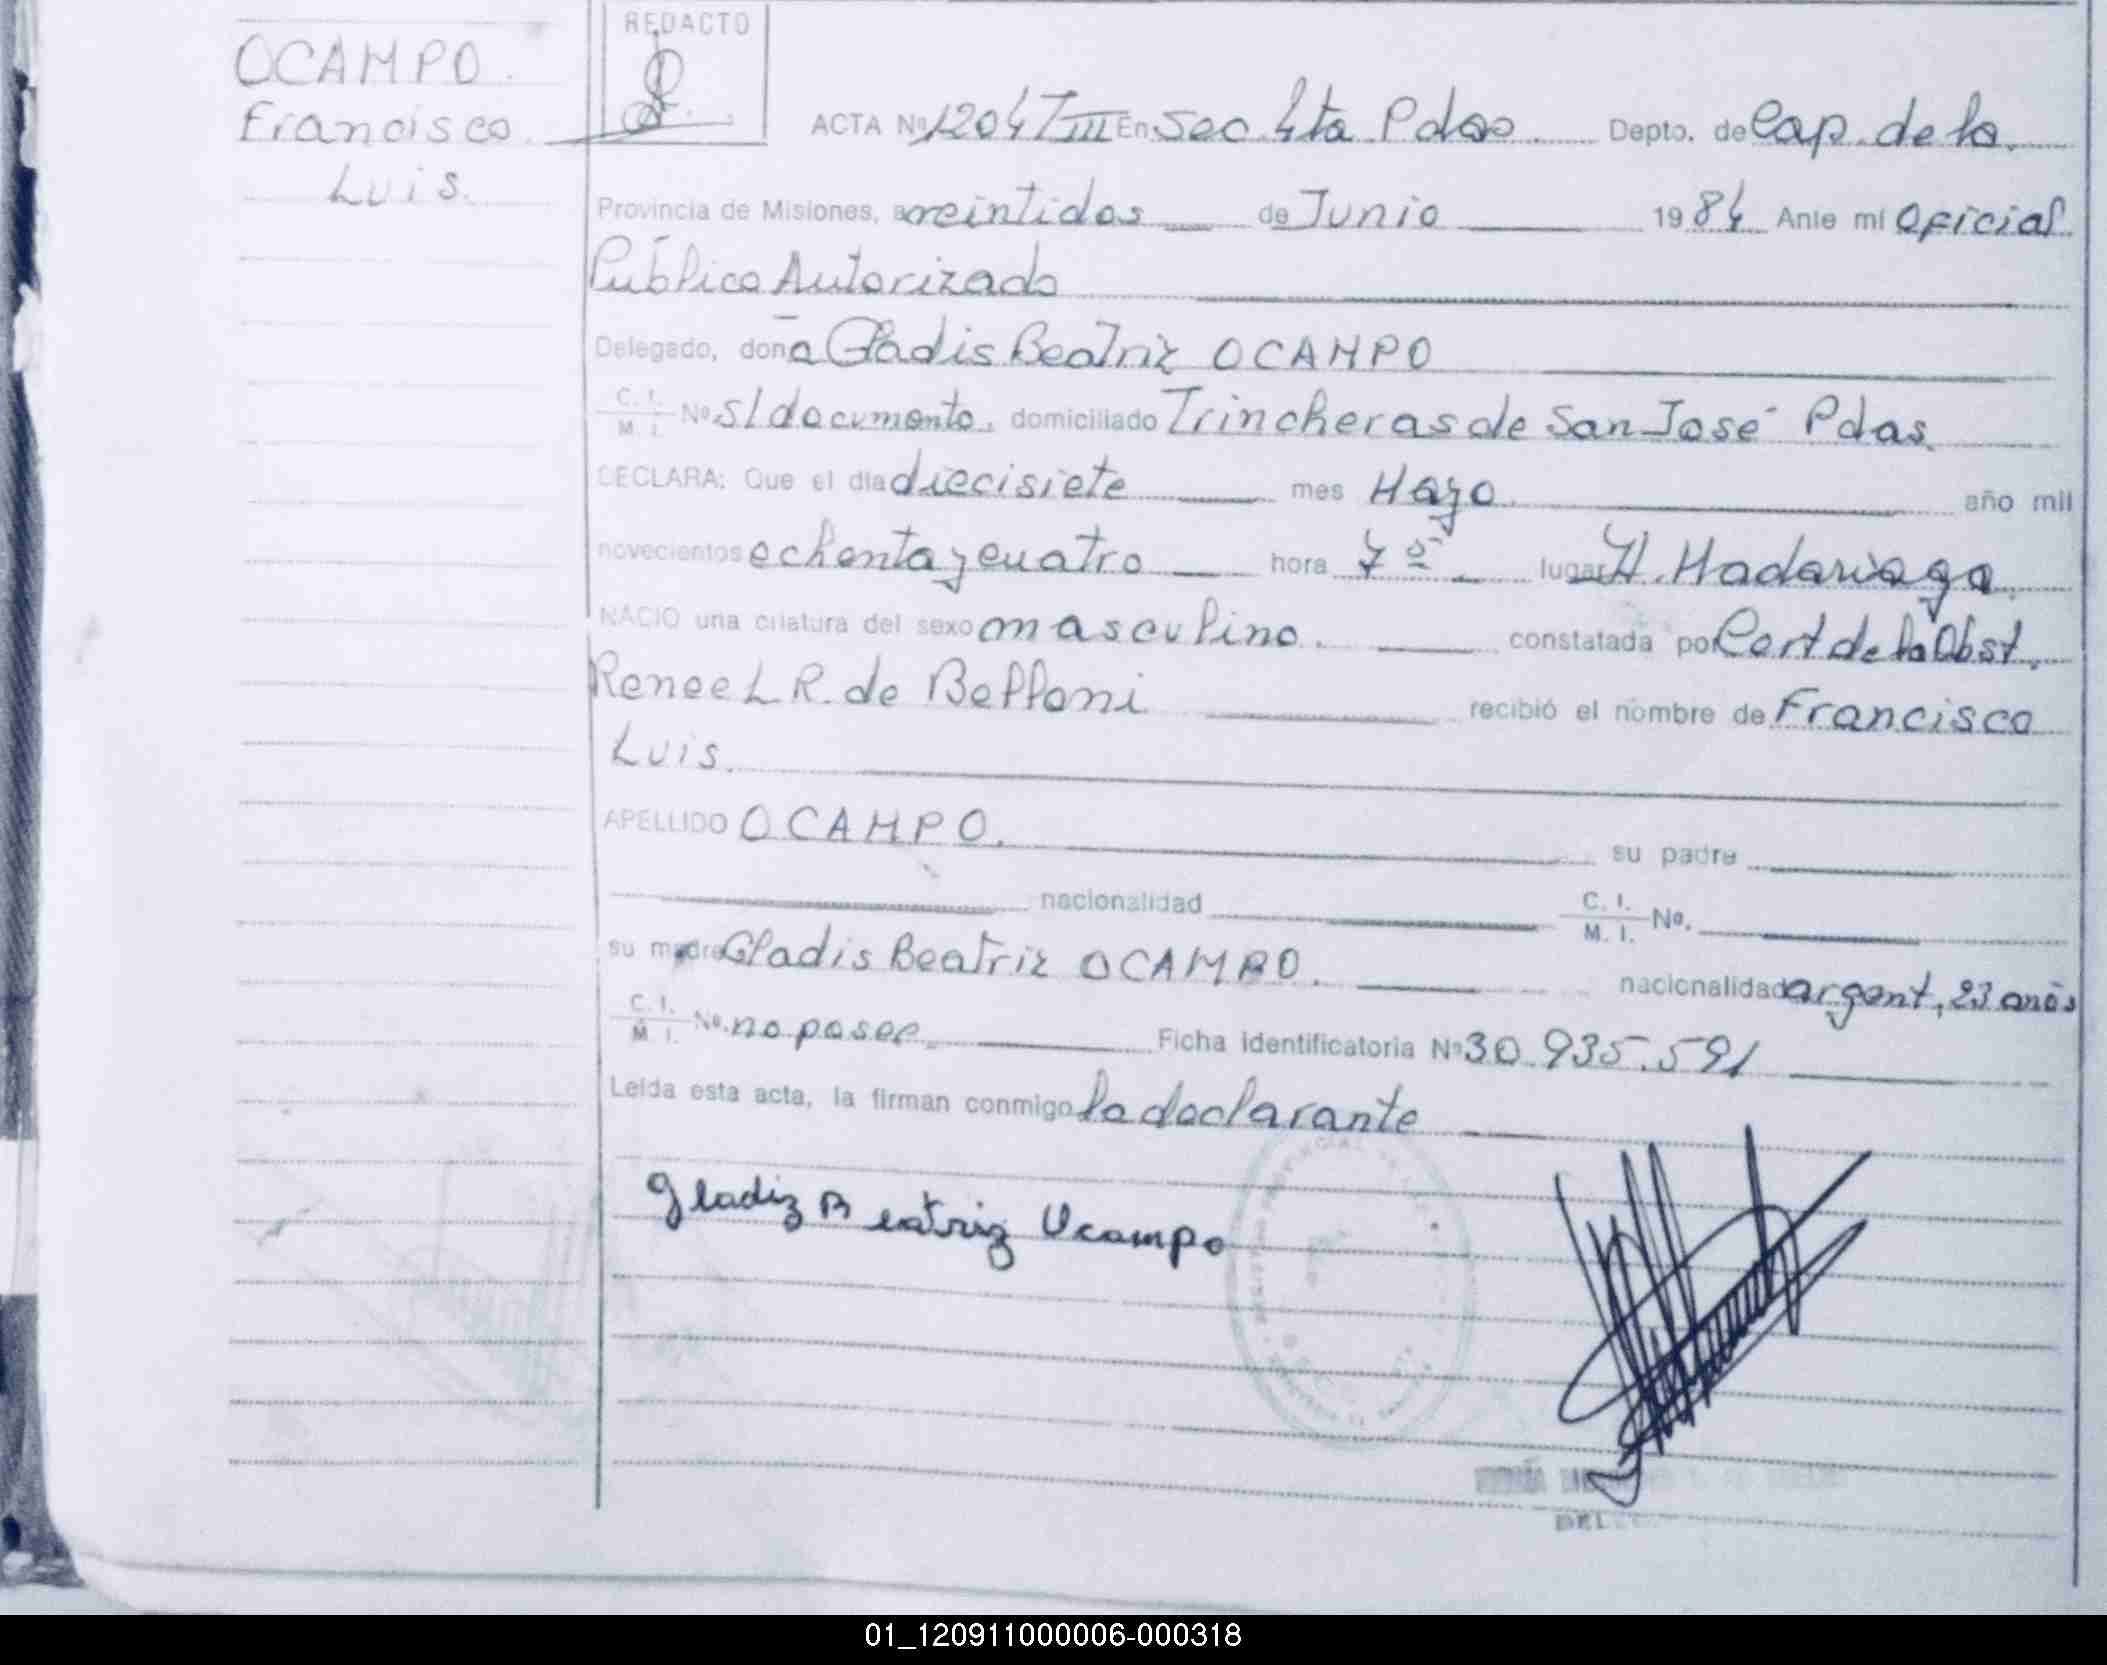 OCAMPO.
Francisco
Luis.
REDACTO
ACTA Nº 1204 TIII En Sec. 4ta Pdas Depto. de Cap. de la
Provincia de Misiones, a veintidos de Junio 1984 Ante mi Oficial
Público Autorizado
Delegado, doña Gladis Beatriz OCAMPO
C. I. M. I. Nº s/documento. domiciliado Trincheras de San José Pdas.
DECLARA: Que el dia diecisiete mes Mayo año mil
novecientos ochenta y cuatro hora 7º lugar H. Madariaga.
NACIO una criatura del sexo masculino. constatada por Cert de la Obst.
Renee L R. de Belloni recibió el nombre de Francisco
Luis.
APELLIDO OCAMPO. su padre
nacionalidad C. I. M. I. Nº.
su madre Gladis Beatriz OCAMPO. nacionalidad argent, 23 años
C. I. M. I. Nº. no posee. Ficha identificatoria Nº 30.935.591
Leida esta acta, la firman conmigo la declarante
Gladiz Beatriz Ocampo
01_120911000006-000318